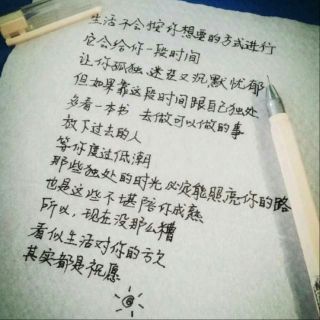 生活不会按你想要的方式进行
它会给你一段时间
让你孤独迷茫又沉默忧郁
但如果靠这段时间跟自己独处
多看一本书 去做可以做的事
放下过去的人
等你度过低潮
那些独处的时光必定能照亮你的路
也是这些不堪陪你成熟
所以，现在没那么糟
看似生活对你的亏欠
其实都是祝愿